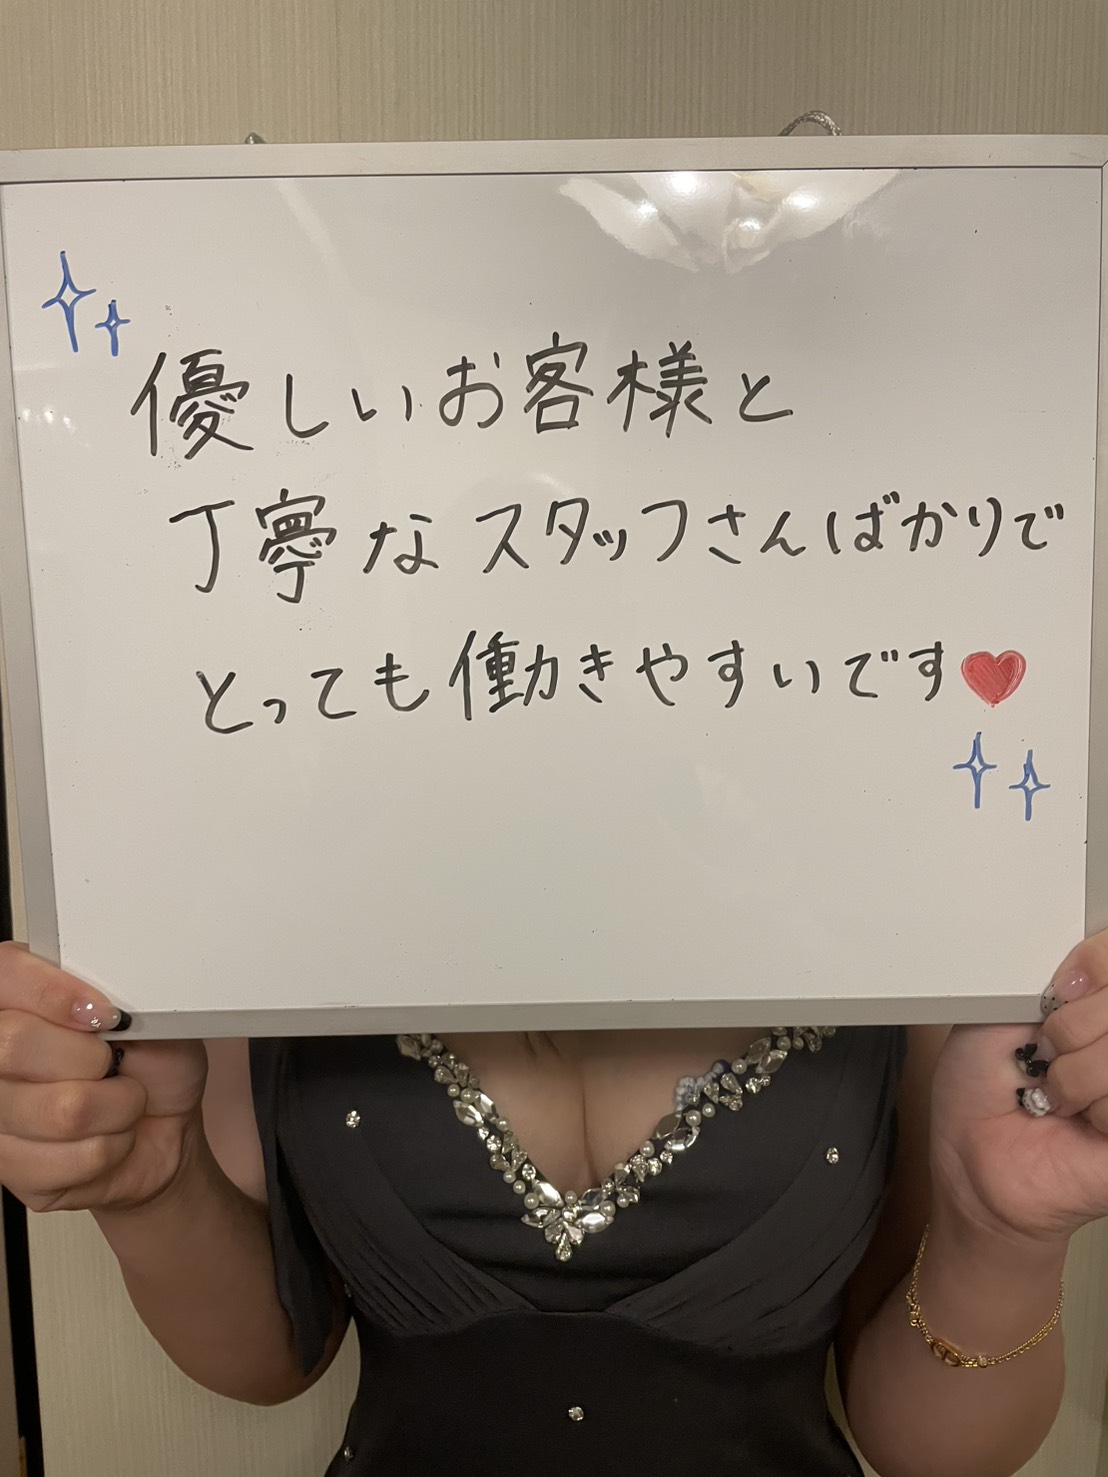 優しいお客様と
丁寧なスタッフさんばかりで
とっても働きやすいです♥